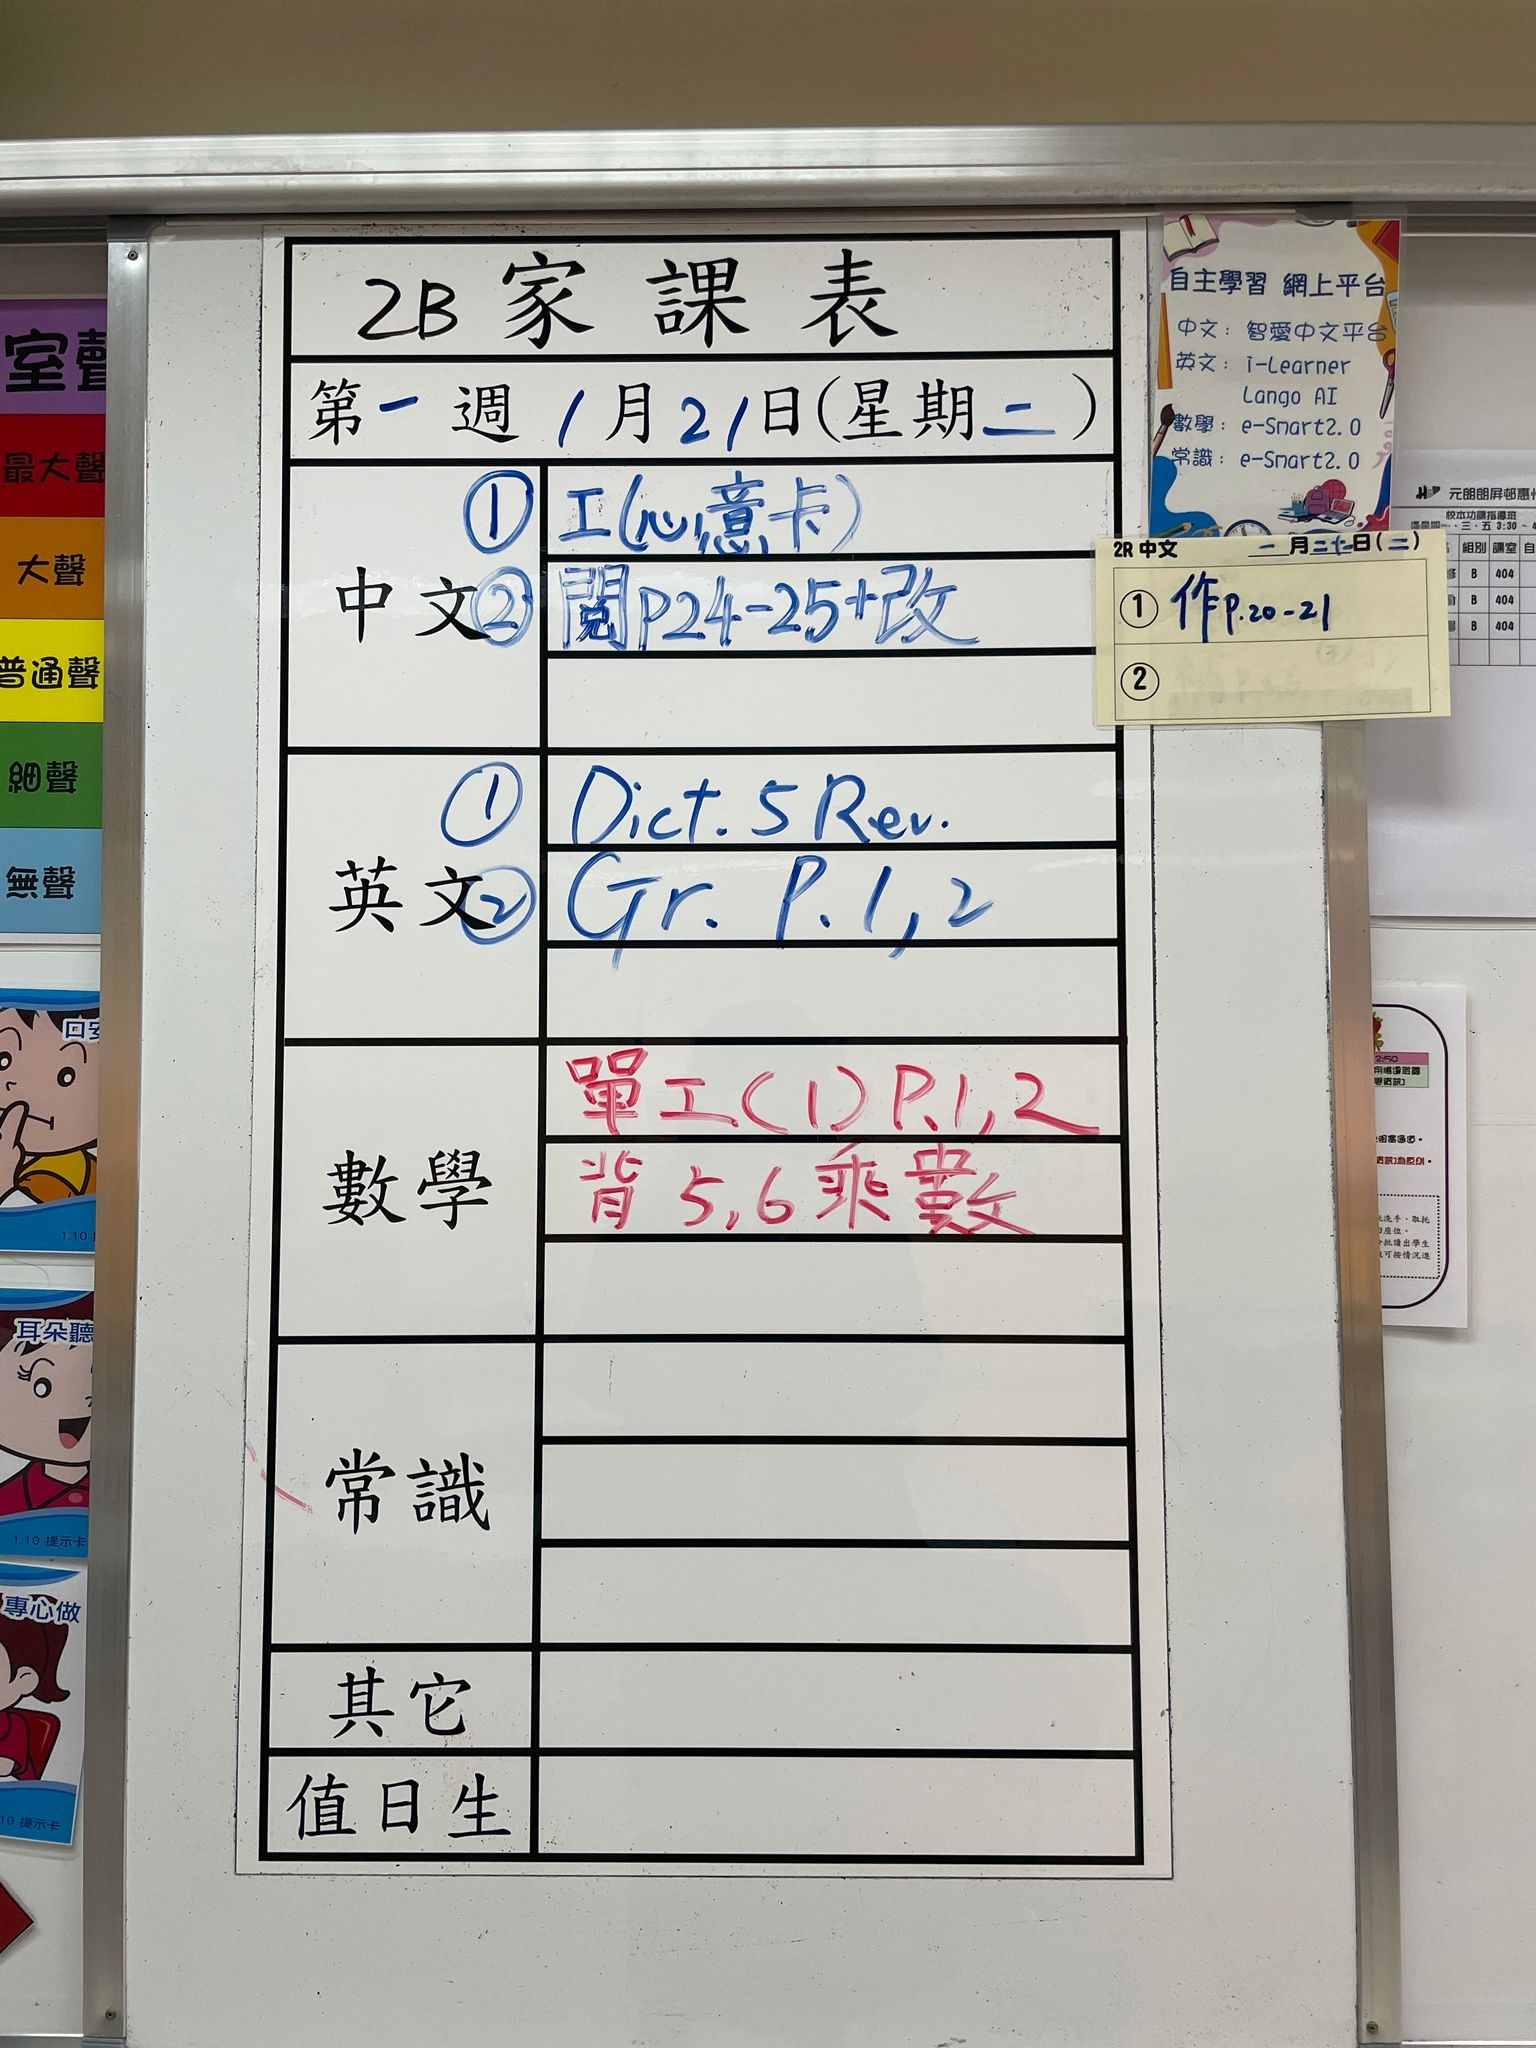 2B 家課表
第一週 1月21日(星期二)
中文
① 工(心意卡)
② 閱P24-25+改
英文
① Dict. 5 Rev.
② Gr. P.1,2
數學
單工(1)P.1,2
背 5,6 乘數
常識
其它
值日生
自主學習 網上平台
中文: 智愛中文平台
英文: i-Learner
Lango AI
數學: e-Smart2.0
常識: e-Smart2.0
2R 中文 一月二十一日(二)
① 作P.20-21
②
最大聲
大聲
普通聲
細聲
無聲
1.10
耳朵聽
1.10 提示卡
專心做
10 提示卡
元朗朗屏邨惠
校本功課指導班
三、五 3:30 ~ 4
組別 課室 自
B 404
B 404
B 404
2:50
洗手、取托
座位。
批請出學生
可按情況進